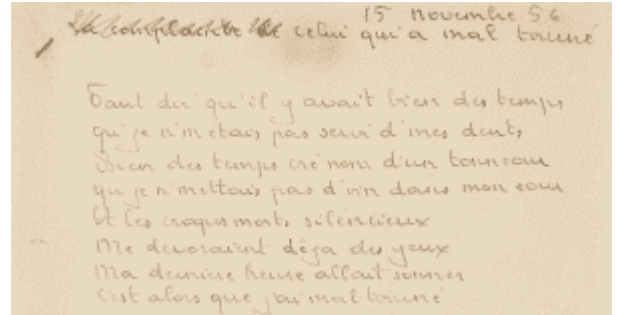 15 novembre 56
La complainte de celui qui a mal tourné
Faut dir' qu'il y avait bien des temps
qu'je n'm'étais pas servi d'mes dents
Bien des temps cré nom d'un tonneau
qu'je n'mettais pas d'vin dans mon eau
Et les croqu'morts silencieux
Me dévoraient déja des yeux
Ma dernière heure allait sonner
C'est alors que j'ai mal tourné